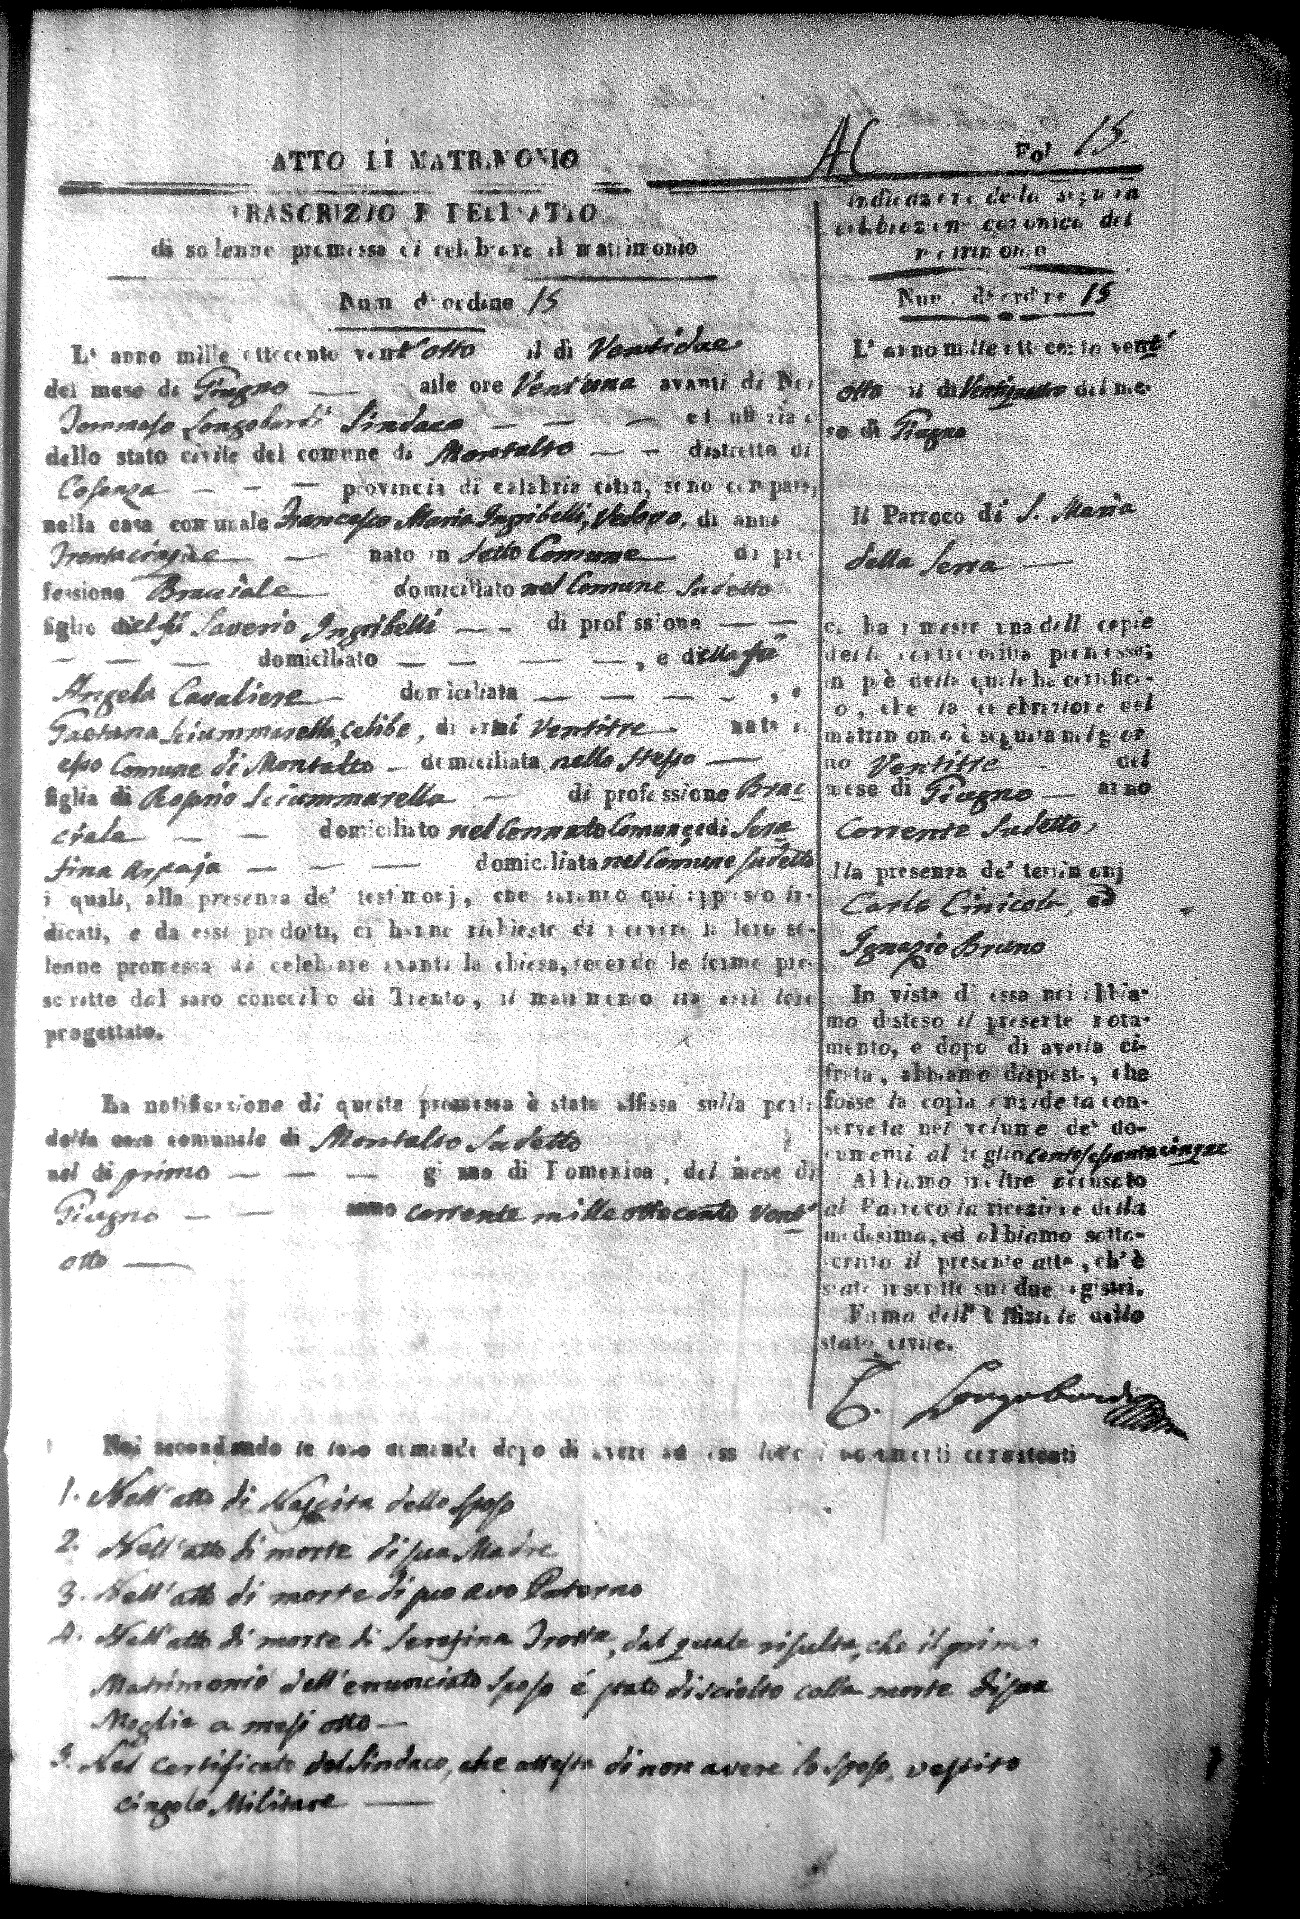 ATTO DI MATRIMONIO
AC Fol 15.
TRASCRIZIONE DELL'ATTO
di solenne promessa di celebrare il matrimonio
Num d'ordine 15
L' anno mille ottocento vent'otto il di Ventidue
del mese di Giugno — alle ore Ventuna avanti di Noi
Tommaso Longobardi Sindaco — — — ed uffiziale
dello stato civile del comune di Montalto — — distretto di
Cosenza — — — provincia di calabria citra, sono comparsi
nella casa comunale Francesco Maria Ingribelli, Vedovo, di anni
Trentacinque — — nato in detto Comune — di pro
fessione Bracciale domiciliato nel Comune Sudetto
figlio del fù Saverio Ingribelli — — di professione — —
— — — domiciliato — — — —, e della fù
Angela Cavaliere — domiciliata — — — — —, e
Gaetana Sciammarella, celibe, di anni Ventitre nata in
esso Comune di Montalto — domiciliata nello stesso —
figlia di Rosario Sciammarella — di professione Brac
ciale — — domiciliato nel Connato Comune, e di Sera
fina Arpaja — — — domiciliata nel Comune sudetto
i quali, alla presenza de' testimonj, che saranno qui appresso in-
dicati, e da essi prodotti, ci hanno richiesto di ricevere la loro so-
lenne promessa di celebrare avanti la chiesa, secondo le forme pre-
scritte dal sacro concilio di Trento, il matrimonio tra essi loro
progettato.
La notificazione di questa promessa è stata affissa sulla porta
della casa comunale di Montalto Sudetto
nel di primo — — — giorno di Domenica, del mese di
Giugno — — anno corrente mille ottocento vent'
otto —
Indicazione della seguita
celebrazione canonica del
matrimonio
Num. d'ordine 15
L' anno mille ottocento vent'
otto il di Ventiquattro del me-
se di Giugno
Il Parroco di S. Maria
della Serra —
ci ha rimesse una delle copie
della sottoscritta promessa;
in piè della quale ha certifica-
to, che la celebrazione del
matrimonio è seguita nel gior
no Ventitre del
mese di Giugno — anno
Corrente Sudetto,
alla presenza de' testimonj
Carlo Cinicola, ed
Ignazio Bruno
In vista di essa noi abbia-
mo disteso il presente nota-
mento, e dopo di averla ci-
frata, abbiamo disposto, che
fosse la copia anzidetta con-
servata nel volume de' do-
cumenti al foglio centosessantacinque
Abbiamo inoltre accusato
al Parroco la ricezione della
medesima, ed abbiamo sotto-
scritto il presente atto, ch'è
stato inscritto sui due registri.
Firma dell'Uffiziale dello
stato civile.
T. Longobardi
Noi secondando le loro domande dopo di avere ad essi letto i documenti consistenti
1. Nell'atto di Nascita dello sposo
2. Nell'atto di morte di sua Madre
3. Nell'atto di morte di suo avo Paterno
4. Nell'atto di morte di Serafina Trotta, dal quale risulta, che il primo
Matrimonio dell'enunciato sposo è stato disciolto colla morte di sua
Moglie a mesi otto —
5. Nel certificato del Sindaco, che attesta di non avere lo sposo, vestito
cingolo Militare —